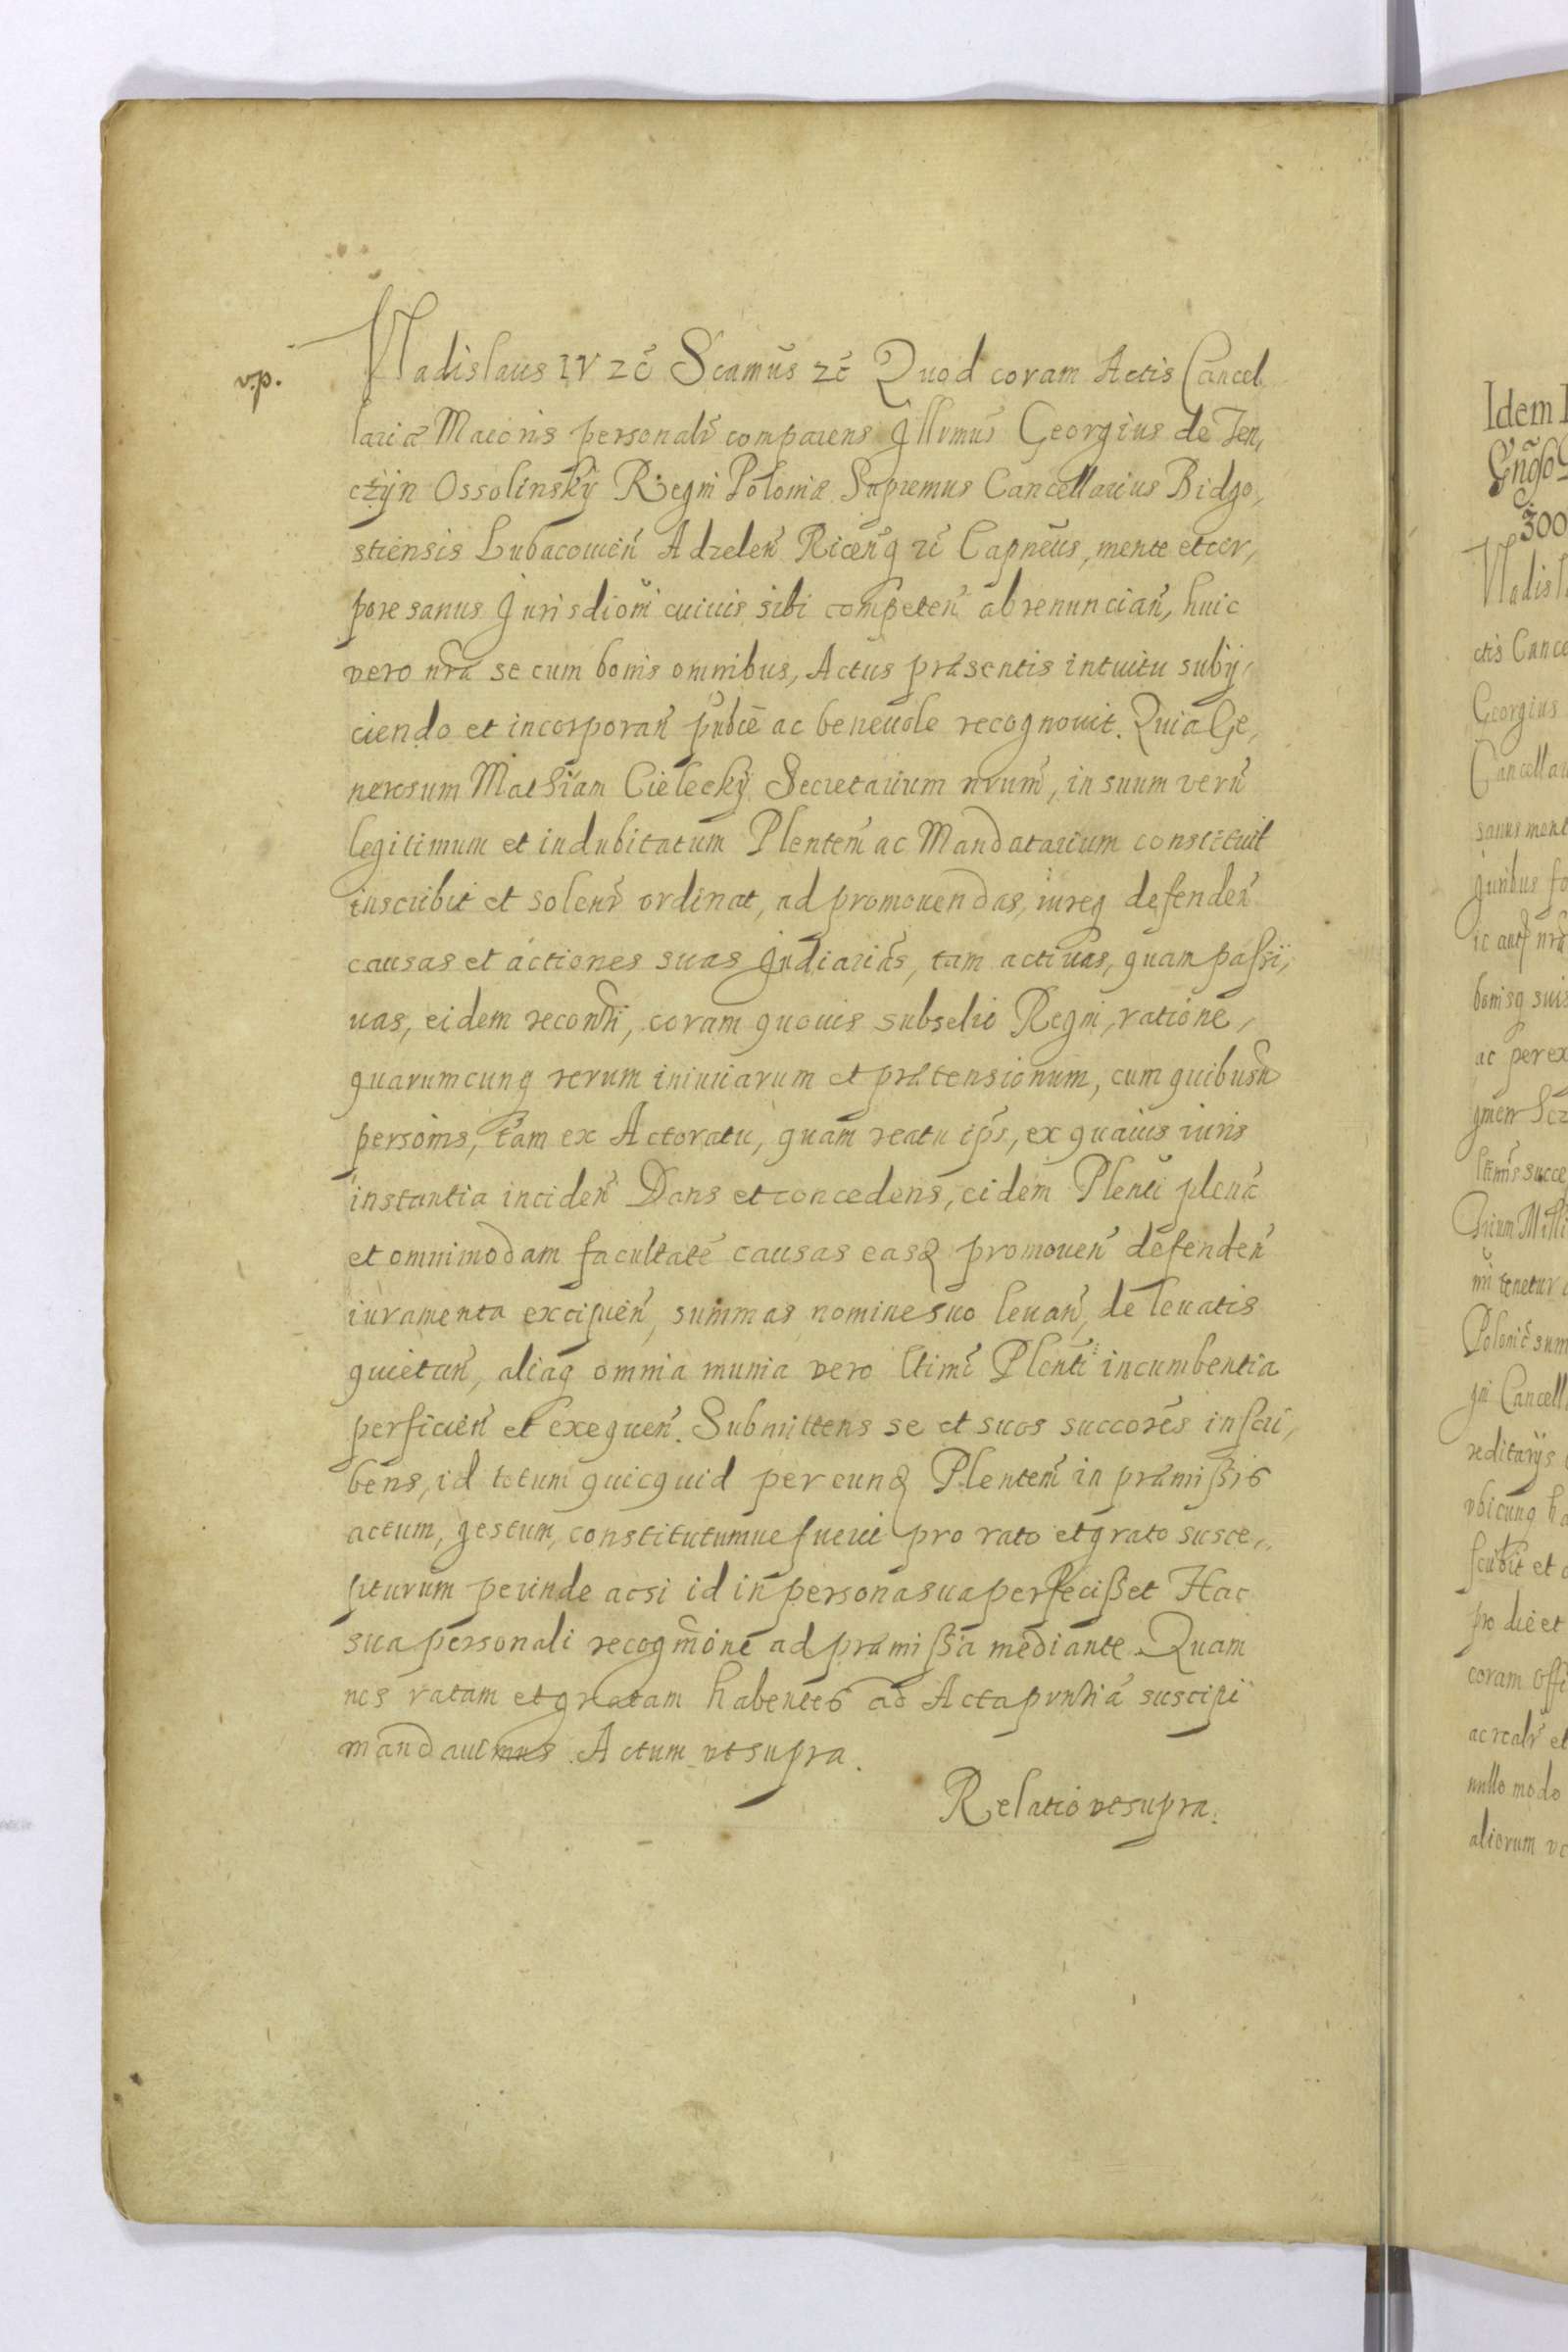 v.p.
Vladislaus IV zc̃ Scamũs zc̃ Quod coram Actis Cancel
lariæ Maioris personalr̃ comparens Jllvmus̃ Georgius de Ten,
czyn Ossolinskÿ Regni Poloniæ Supremus Cancellarius Bidgo,
stiensis Lubacouien̄ Adzelen̄ Ricen̄q zc̃ Capnẽus, mente et cor,
pore sanus Jurisdioñi cuiuis sibi competen̄ abrenuncian̄, huic
vero nr̃a se cum bonis omnibus, Actus præsentis intuitu subij,
ciendo et incorporan̄ publcẽ ac beneuole recognouit. Quia Ge,
nerosum Mathiam Cieleckÿ Secretarium nrum̃, in suum verũ
legitimum et indubitatum Plentem̃ ac Mandatarium constituit
inscribit et solenr̃ ordinat, ad promouendas, iureq defenden̄
causas et actiones suas Judiarias̃, tam actiuas, quam passi,
uas, eidem recontĩ, coram quouis subselio Regni, ratione,
quarumcunq rerum iniuriarum et prætensionum, cum quibusũ
personis, tam ex Actoratu, quam reatu ips̃, ex quauis iuris
instantia inciden̄ Dans et concedens, eidem Plenti̇̃ plenã
et omnimodam facultatẽ causas easq promouen̄ defenden̄
iuramenta excipien̄, summas nomine suo leuan̄, de leuatis
quietan̄, aliaq omnia munia vero ltimẽ Plentĩ incumbentia
perficien̄ et exequen̄. Submittens se et suos succorẽs inscri,
bens, id totum quicquid per eunq Plentem̃ in præmissis
actum, gestum, constitutumue fuerit pro rato et grato susce,
pturum perinde acsi id in persona sua perfecisset Hac
sua personali recogñione ad præmissa mediante. Quam
nos ratam et gratam habentes ad Acta pñntiã suscipi
mandauimus. Actum vt supra.
Relatio vt supra.
Idem
300
Vladisl
ctis Cance
Georgius
Cancellar
sanus ment
Juribus fo
bonisq suis
ac per ex
mi tenetur
Cancell
reditarijs
vbicunq ha
scribit et
pro die et
coram Offi
ac realr̃ et
nullo modo
aliorum ve